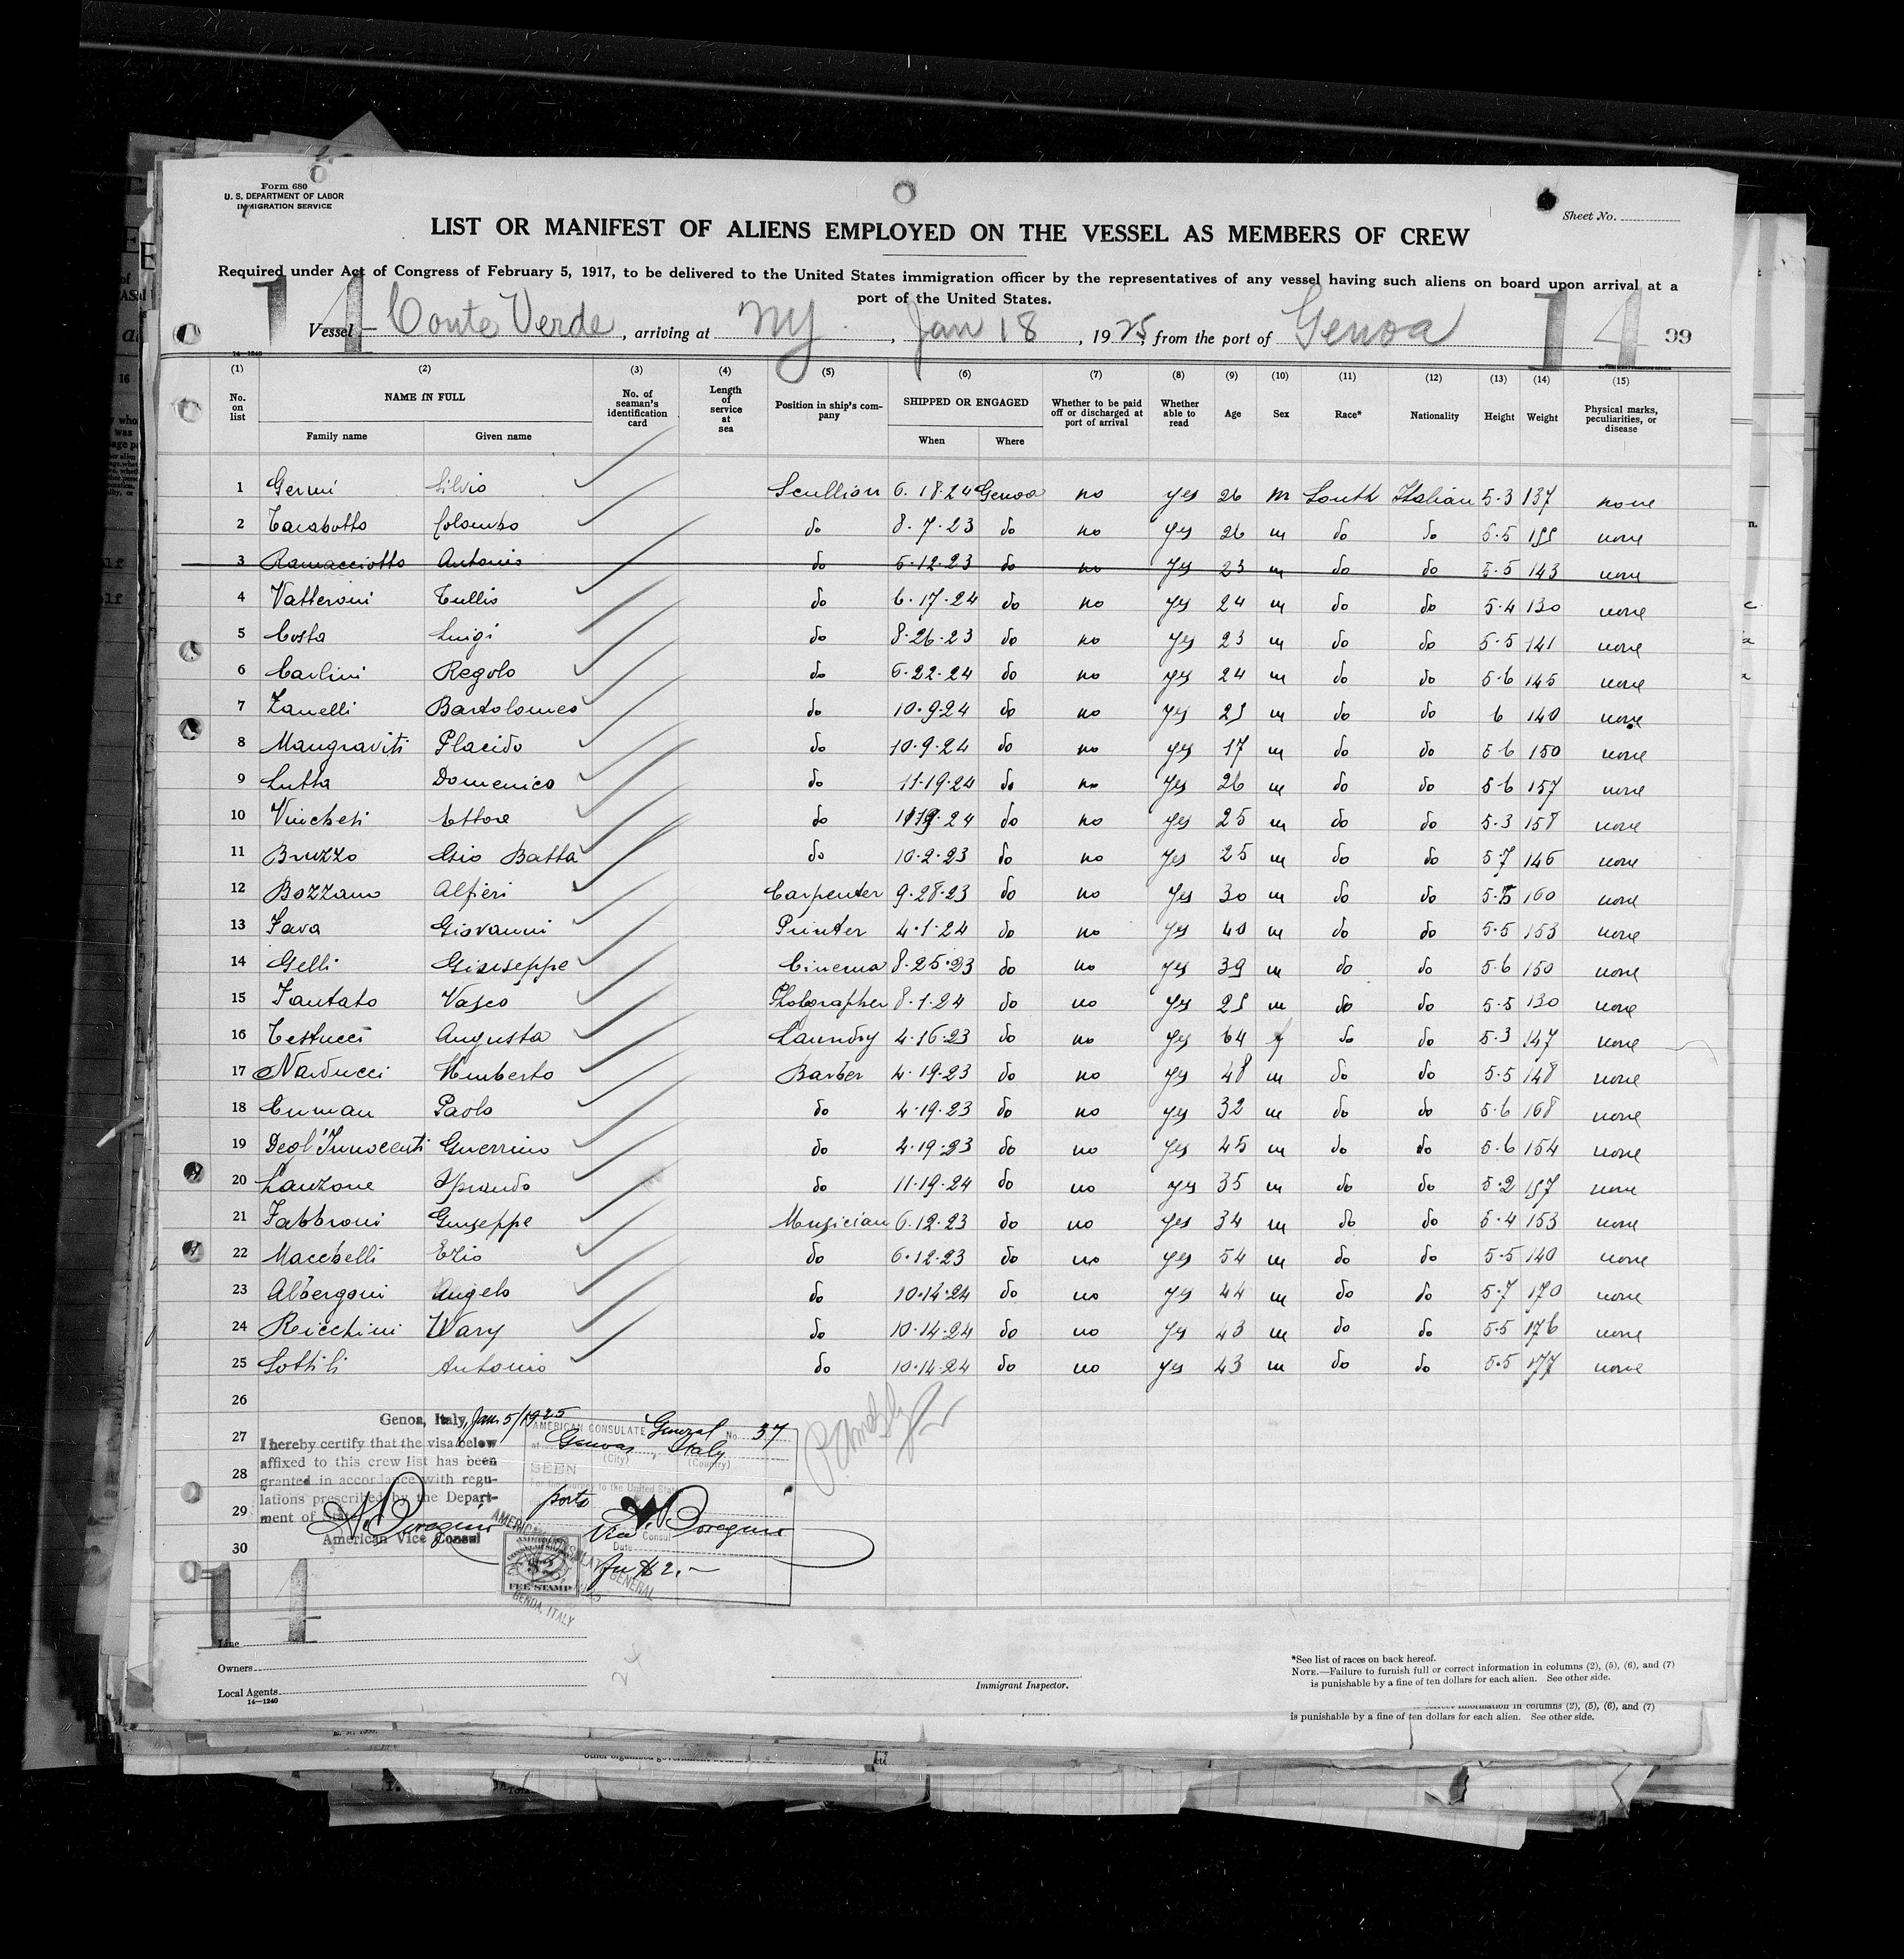 Form 680
U. S. DEPARTMENT OF LABOR
IMMIGRATION SERVICE
Sheet No.
LIST OR MANIFEST OF ALIENS EMPLOYED ON THE VESSEL AS MEMBERS OF CREW
Required under Act of Congress of February 5, 1917, to be delivered to the United States immigration officer by the representatives of any vessel having such aliens on board upon arrival at a
port of the United States.
14 Vessel Conte Verde, arriving at NY, Jan 18, 1925, from the port of Genoa 14 99
14—1240
(1) (2) (3) (4) (5) (6) (7) (8) (9) (10) (11) (12) (13) (14) (15)
No. on list NAME IN FULL No. of seaman's identification card Length of service at sea Position in ship's company SHIPPED OR ENGAGED Whether to be paid off or discharged at port of arrival Whether able to read Age Sex Race* Nationality Height Weight Physical marks, peculiarities, or disease
Family name Given name When Where
1 Germi Silvio Scullion 6.18.24 Genoa no yes 26 m South Italian 5.3 137 none
2 Tarabotto Colombo do 8.7.23 do no yes 26 m do do 5.5 155 none
3 Ramacciotto Antonio do 5.12.23 do no yes 23 m do do 5.5 143 none
4 Vatteroni Tullio do 6.17.24 do no yes 24 m do do 5.4 130 none
5 Costa Luigi do 8.26.23 do no yes 23 m do do 5.5 141 none
6 Carlini Regolo do 6.22.24 do no yes 24 m do do 5.6 145 none
7 Zanelli Bartolomeo do 10.9.24 do no yes 25 m do do 6 140 none
8 Mangraviti Placido do 10.9.24 do no yes 17 m do do 5 6 150 none
9 Lutta Domenico do 11.19.24 do no yes 26 m do do 5 6 157 none
10 Vincheti Ettore do 11 19.24 do no yes 25 m do do 5.3 158 none
11 Bruzzo Gio Batta do 10.2.23 do no yes 25 m do do 5 7 146 none
12 Bozzano Alfieri Carpenter 9.28.23 do no yes 30 m do do 160 none
13 Fava Giovanni Printer 4.1.24 do no yes 40 m do do 5.5 153 none
14 Gelli Giuseppe Cinema 8.25.23 do no yes 39 m do do 5.6 150 none
15 Tantato Vasco Photographer 8.1.24 do no yes 25 m do do 5.5 130 none
16 Testucci Augusta Laundry 4.16.23 do no yes 64 f do do 5.3 147 none
17 Narducci Humberto Barber 4.19.23 do no yes 48 m do do 5.5 148 none
18 Cuman Paolo do 4.19.23 do no yes 32 m do do 5.6 168 none
19 Degl'Innocenti Guerrino do 4.19.23 do no yes 45 m do do 5.6 154 none
20 Lanzone do 11.19.24 do no yes 35 m do do 5.2 157 none
21 Fabbroni Giuseppe Musician 6.12.23 do no yes 34 m do do 5.4 153 none
22 Maccbelli Ezio do 6.12.23 do no yes 54 m do do 5.5 140 none
23 Albergoni Angelo do 10.14.24 do no yes 44 m do do 5.7 170 none
24 Ricchini Wary do 10.14.24 do no yes 43 m do do 5.5 176 none
25 Sottili Antonio do 10.14.24 do no yes 43 m do do 5.5 177 none
26
27
28
29
30
Genoa, Italy, Jan. 5/1925
I hereby certify that the visa below
affixed to this crew list has been
granted in accordance with regu-
lations prescribed by the Depart-
ment of State
American Vice Consul
AMERICAN CONSULATE General No. 37
at Genoa, Italy
(City) (Country)
SEEN
For the journey to the United States
ports
Vice Consul
Date
fee $2.—
AMERICAN CONSULATE GENERAL
GENOA, ITALY
$2
FEE STAMP
14
Line
Owners
Local Agents
14—1240
Immigrant Inspector.
*See list of races on back hereof.
NOTE.—Failure to furnish full or correct information in columns (2), (5), (6), and (7)
is punishable by a fine of ten dollars for each alien. See other side.
information in columns (2), (5), (6), and (7)
is punishable by a fine of ten dollars for each alien. See other side.